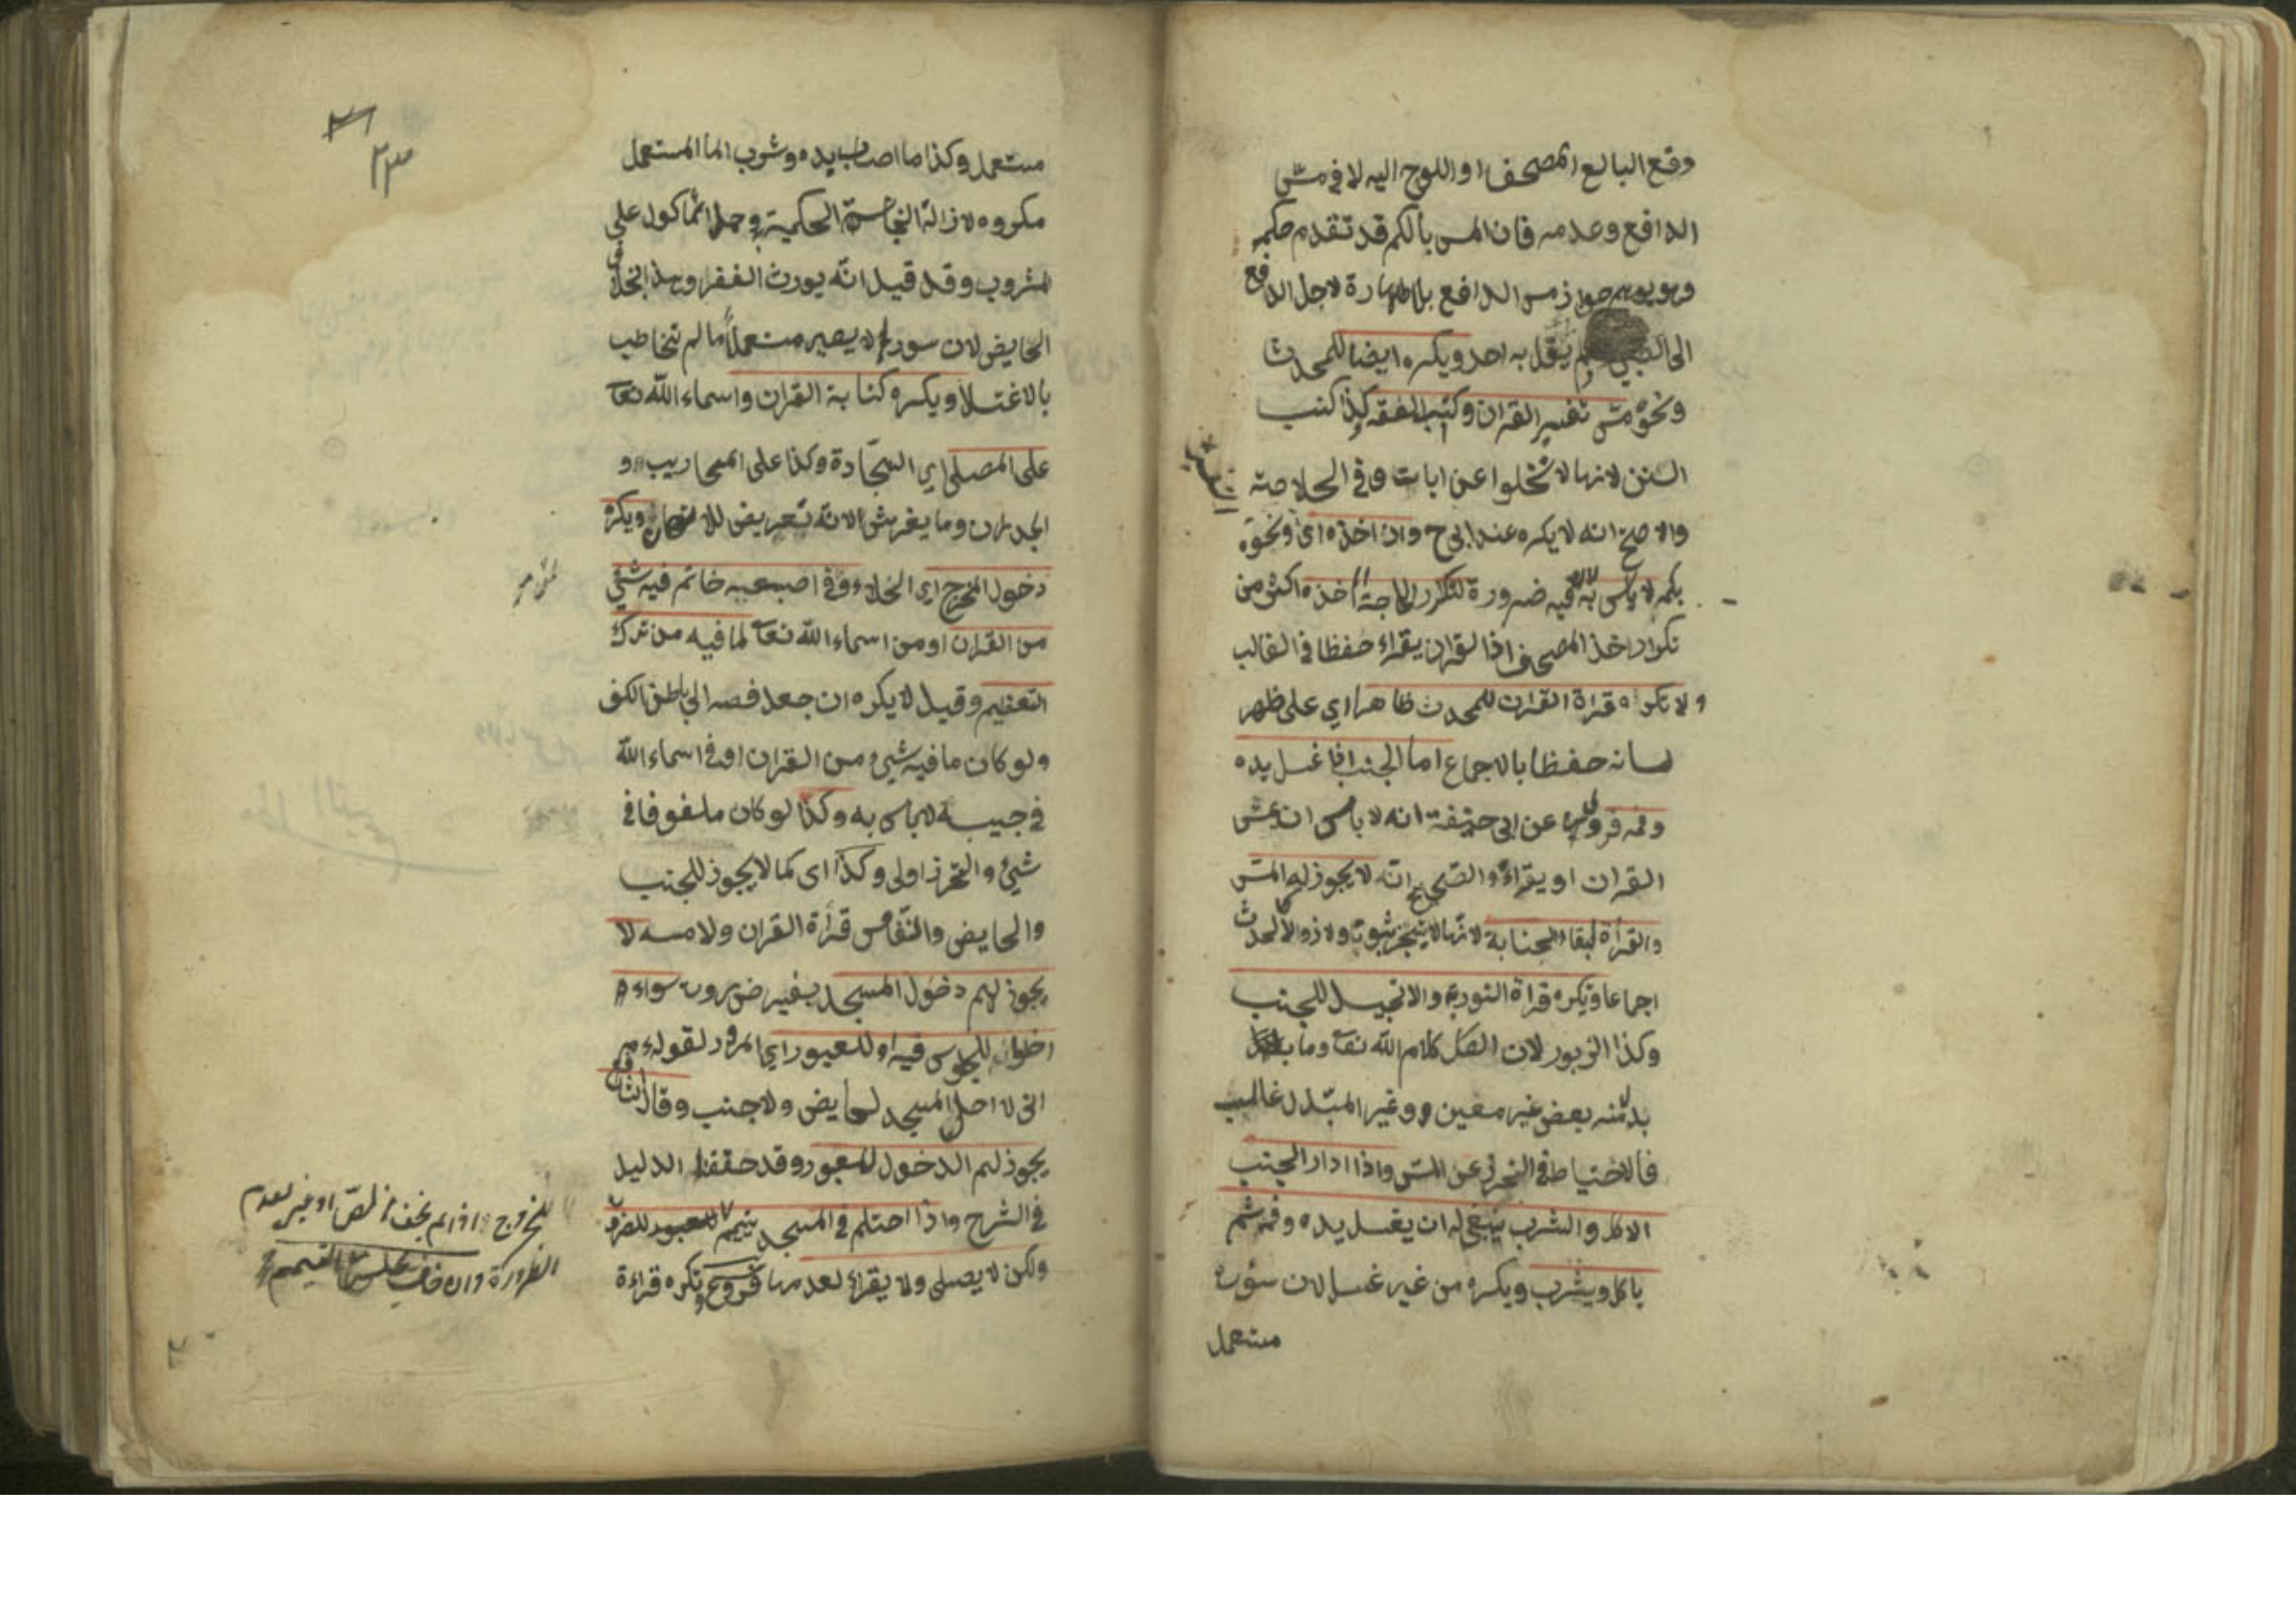 دفع البالغ المصحف او اللوح اليه لا في مس
الدافع وعدمه فان المس بالكم قد تقدم حكمه
وهو يوهم جواز مس الدافع بلا طهارة لاجل الدفع
الى الصبي ولم يقل به احد ويكره ايضا للمحدث
ونحوه مس تفسير القران وكتب الفقه وكذا كتب
السنن لانها لا تخلوا عن ايات وفي الخلاصة
والاصح انه لا يكره عند ابي ح وان اخذه اي ونحوه
بكمه لا باس به لان فيه ضرورة لتكرر الحاجة الى اخذه اكثر من
تكرار اخذ المصحف اذ القران يقراء حفظا في الغالب
ولا تكره قراة القران للمحدث ظاهرا اي على ظهر
لسانه حفظا بالاجماع اما الجنب اذا غسل يده
وفمه فروي عن ابي حنيفة انه لا باس ان يمس
القران او يقراء والصحيح انه لا يجوز له المس
والقرأة لبقاء الجنابة لانها لا تتجزء ثبوتا ولا زوالا كالحدث
اجماعا ويكره قراة التورية والانجيل للجنب
وكذا الزبور لان الكل كلام الله تعا وما
بدل منه بعض غير معين وغير المبدل غالب
فالاحتياط في التحرز عن المس واذا اراد الجنب
الاكل والشرب ينبغي له ان يغسل يده وفمه ثم
ياكل ويشرب ويكره من غير غسل لان سؤره
مستعمل
٢٣
مستعمل وكذا ما اصاب يده وشرب الما المستعمل
مكروه لازالة النجاسة الحكمية وحمل الماكول على
المشروب وقد قيل انه يورث الفقر وهذا بخلاف
الحايض لان سورها لا يصير مستعملا ما لم تخاطب
بالاغتسال ويكره كتابة القران واسماء الله تعا
على المصلى اي السجادة وكذا على المحاريب و
الجدران وما يفرش لانه تعريض للامتهان ويكره
دخول المخرج اي الخلاء وفي اصبعيه خاتم فيه شئ
من القران او من اسماء الله تعا لما فيه من ترك
التعظيم وقيل لا يكره ان جعل فصه الى باطن الكف
ولو كان ما فيه شئ من القران او في اسماء الله
في جيبه لا باس به وكذا لو كان ملفوفا في
شئ والتحرز اولى وكذا اى كما لا يجوز للجنب
والحايض والنفاس قرأة القران ولا مسه لا
يجوز لهم دخول المسجد بغير ضرورت سواء
دخلوا للجلوس فيه او للعبور اي المرور لقوله عم
اني لا احل المسجد لحايض ولا جنب وقال الشافع
يجوز لهم الدخول للعبور وقد حققنا الدليل
في الشرح واذا احتلم في المسجد تيمم للعبور للضرورة
ولكن لا يصلى ولا يقراء لعدمها فروع وتكره قراءة
للخروج اذا لم يخف لصا او غير لعدم
الضرورة وان خاف يجلس مع التيمم